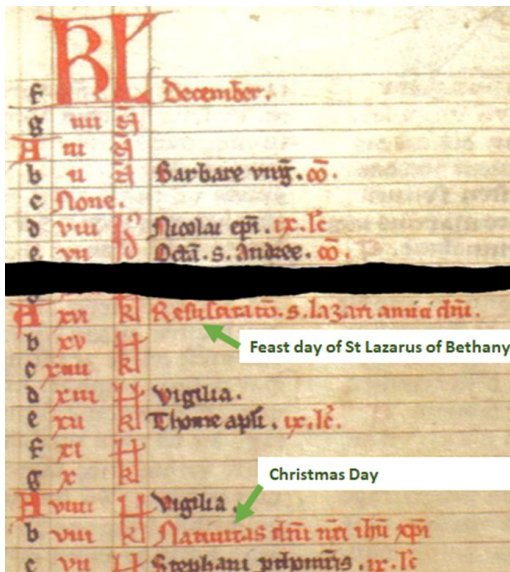 KL
f December.
g iiii N
A iii N
b ii N Barbare virg̅. co̅.
c None.
d viii Id Nicolai epi̅. ix. lc̅
e vii Octa̅. s. Andree. co̅.
A xvi kl Resuscitatio̅. s. lazari amici dn̅i.
Feast day of St Lazarus of Bethany
b xv kl
c xiiii kl
d xiii kl Vigilia.
e xii kl Thome apl̅i. ix. lc̅.
f xi kl
g x kl
Christmas Day
A viiii kl Vigilia.
b viii kl Nativitas dn̅i nr̅i ihu̅ xp̅i
c vii Stephani ix. lc̅